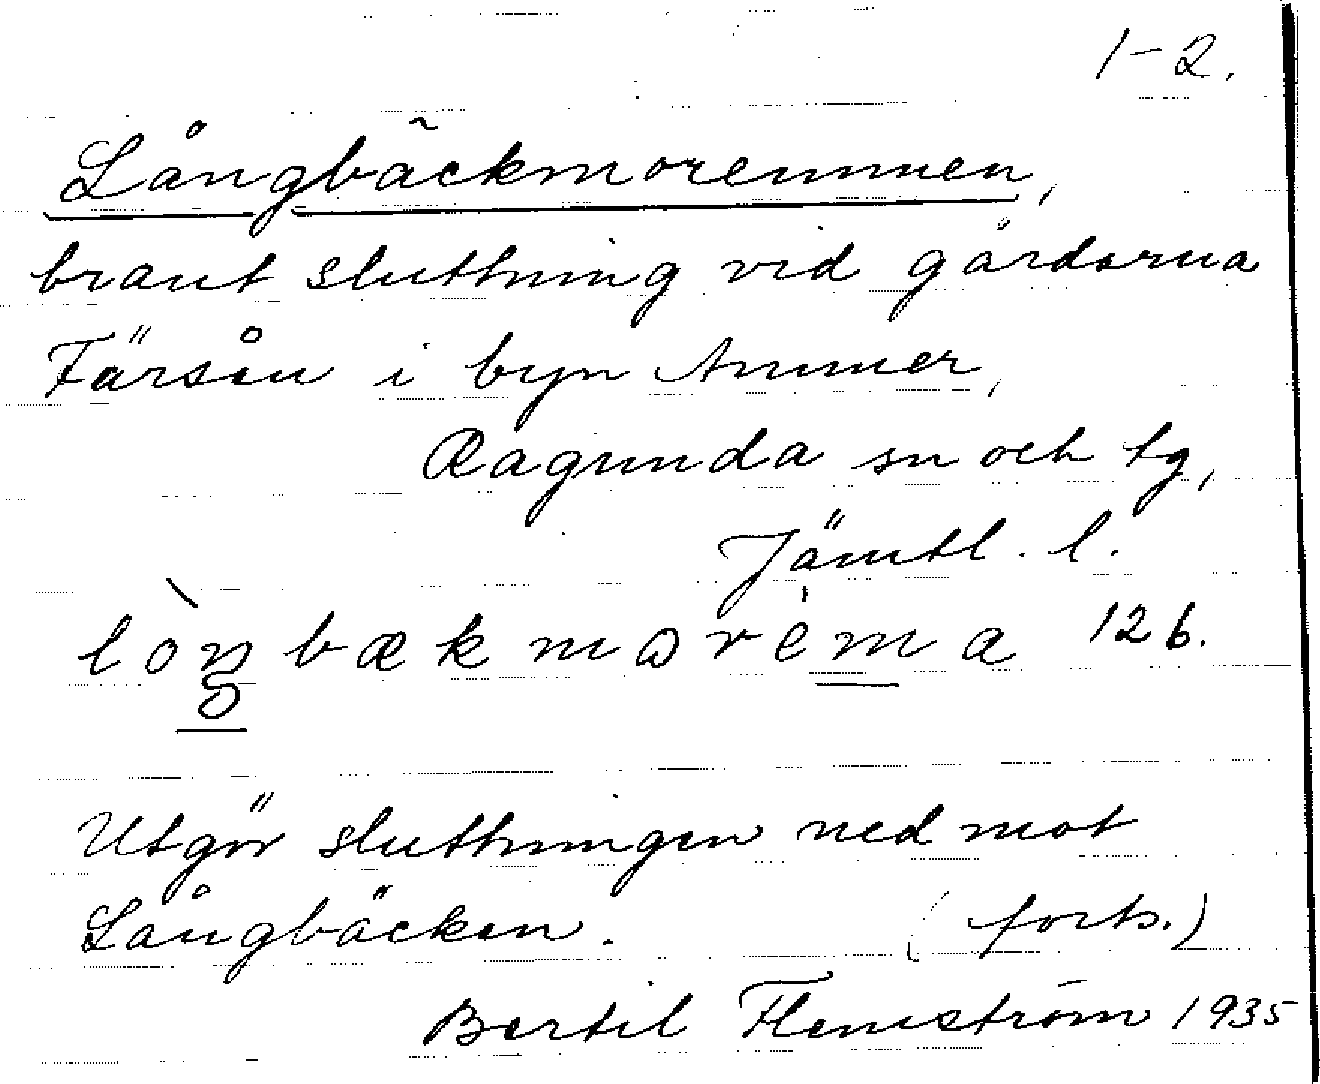 1-2.
Långbäckmoremmen,
brant sluttning vid gårdarna
Färsån i byn Ammer,
Ragunda sn och tg,
Jämtl. l.
126.
Utgör sluttningen ned mot
Långbäcken. (forts.)
Bertil Flemström 1935